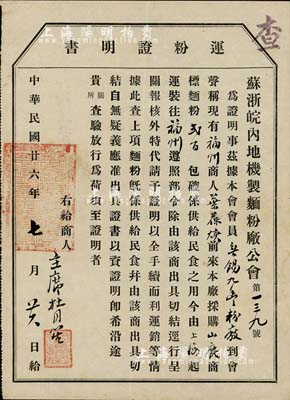 查
運粉證明書
蘇浙皖內地機製麵粉廠公會 第一三九號
為證明事茲據本會會員無錫九豐粉廠到會
聲稱現有福州商人葉葆 前來本廠採購山鹿商
標麵粉弍百包確係供給民食之用今由上海起
運裝往福州遵照部令除由該商出具切結逕行呈
關報核外特代請予證明以全手續而利運銷等情
據此查上項麵粉旣係供給民食并由該商出具切
結自無疑義應准出具證書以資證明卽希沿途
貴關所查驗放行爲荷須至證明者
右給商人
主席杜月笙
中華民國廿六年七月 日給